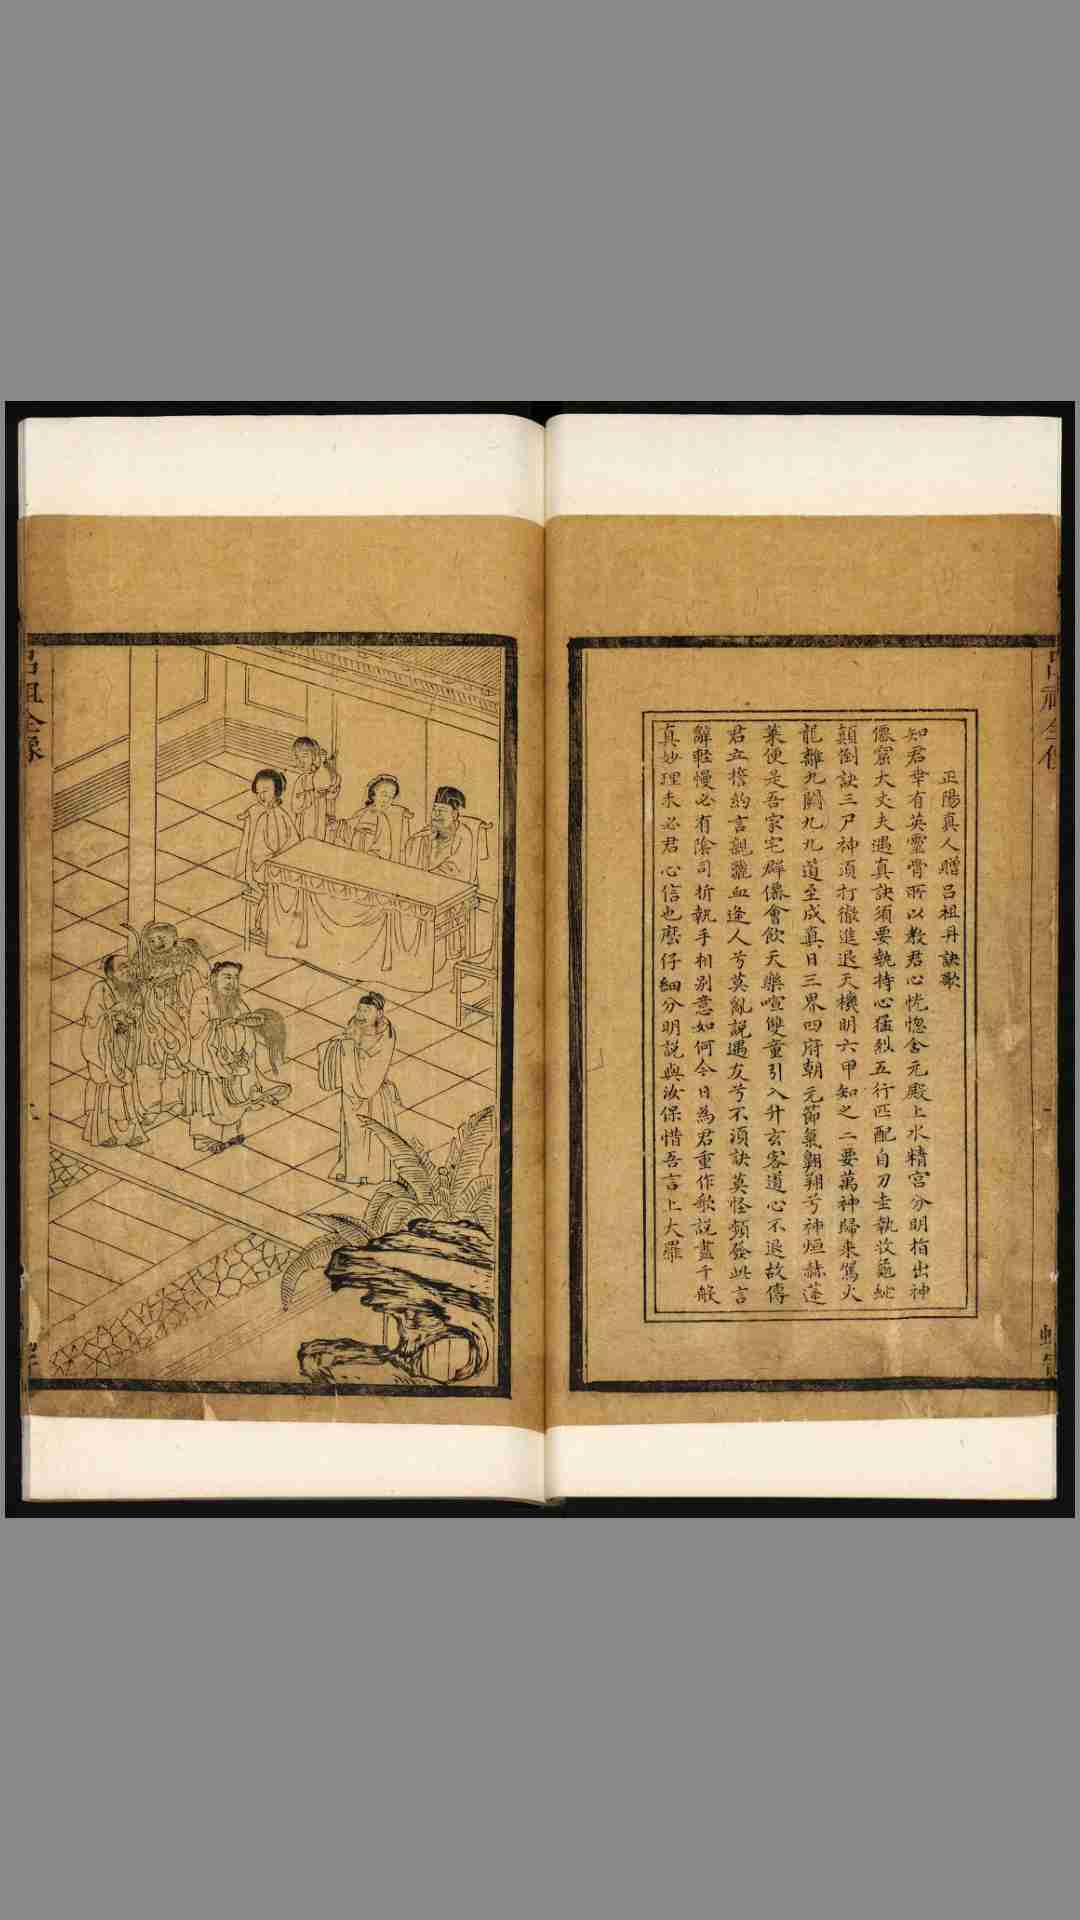 正陽真人贈呂祖丹訣歌
知君幸有英靈骨所以教君心恍惚含元殿上水精宮分明指出神
僊窟大丈夫遇真訣須要執持心猛烈五行匹配自刀圭執收龜蛇
顛倒訣三尸神須打徹進退天機明六甲知之二要萬神歸來駕火
龍離九關九九道至成真日三界四府朝元節氣翱翔兮神烜赫蓬
萊便是吾家宅群僊會飲天樂喧雙童引入升玄客道心不退故傳
君立誓約言親灑血逢人兮莫亂說遇友兮不須訣莫怪頻發此言
辭輕慢必有陰司折執手相別意如何今日為君重作歌說盡千般
真妙理未必君心信也麼仔細分明說與汝保惜吾言上大羅
呂祖全像